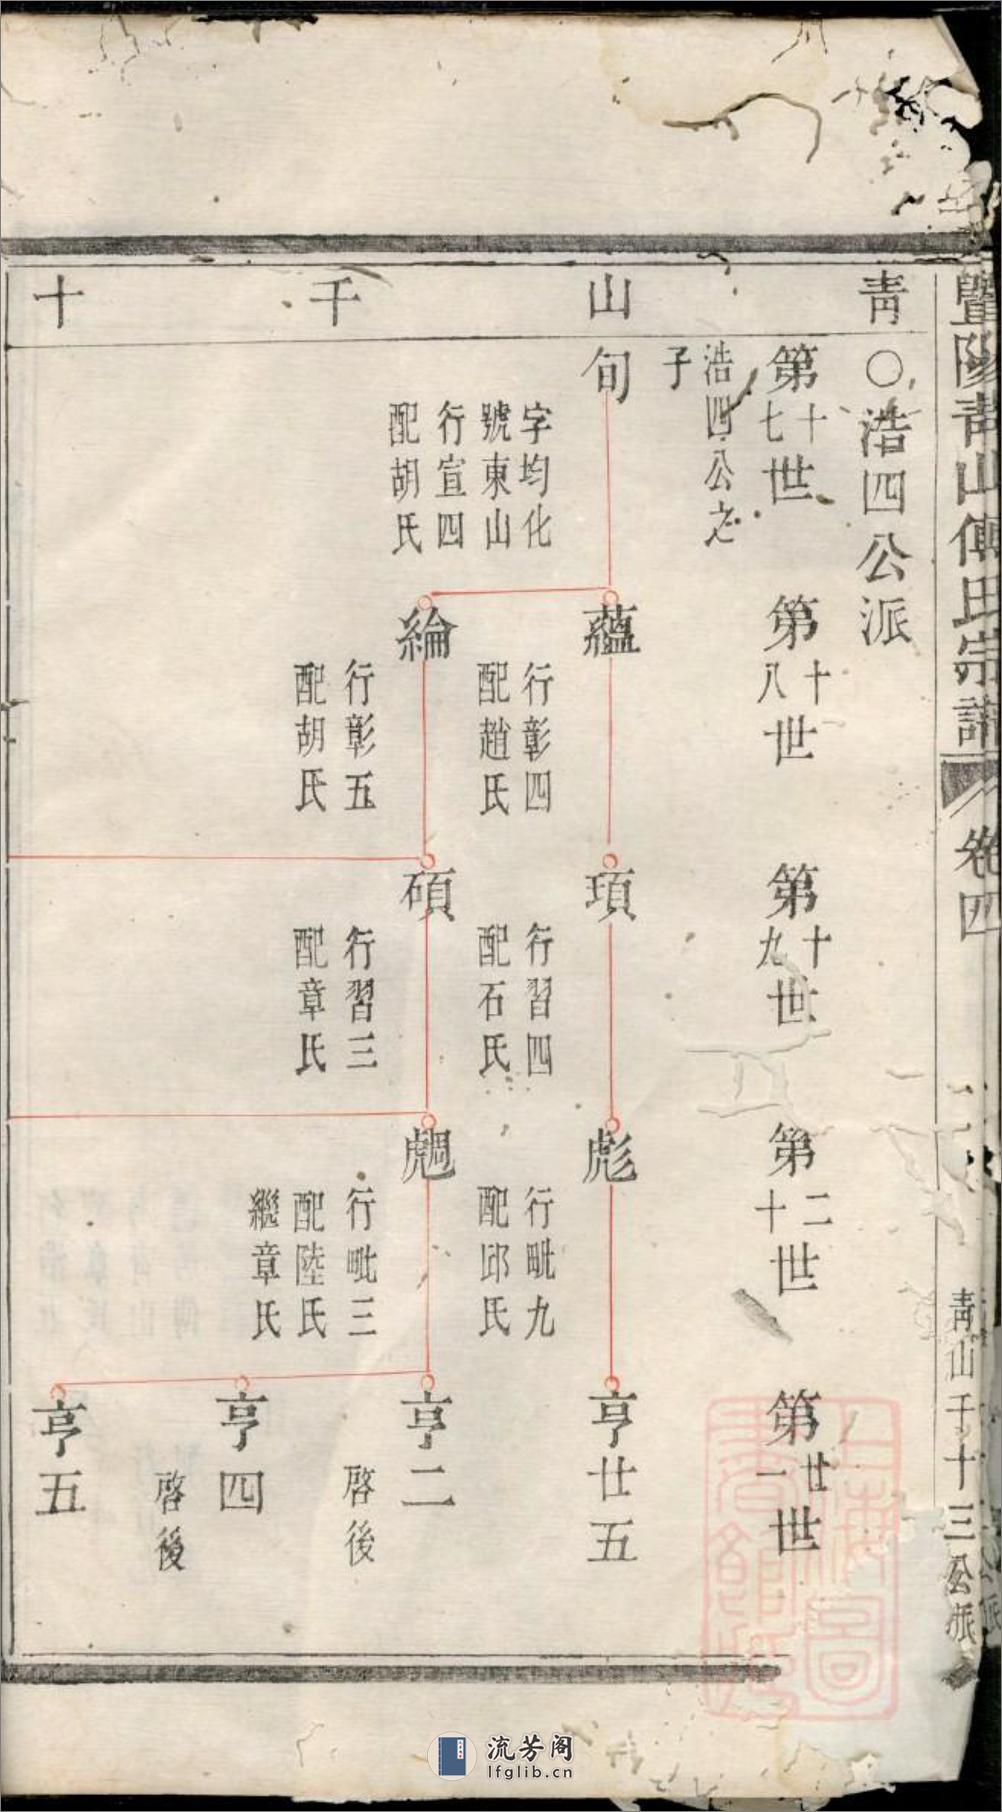 暨陽青山傅氏宗譜
卷四
青山千十三公派
青山千十
○浩四公派
第十七世
第十八世
第十九世
第二十世
第廿一世
浩四公之
子
旬
字均化
號東山
行宣四
配胡氏
蘊
行彰四
配趙氏
項
行習四
配石氏
彪
行毗九
配邱氏
亨廿五
綸
行彰五
配胡氏
碩
行習三
配章氏
行毗三
配陸氏
繼章氏
亨二
啓後
亨四
啓後
亨五
上海圖書館藏
流芳阁
lfglib.cn